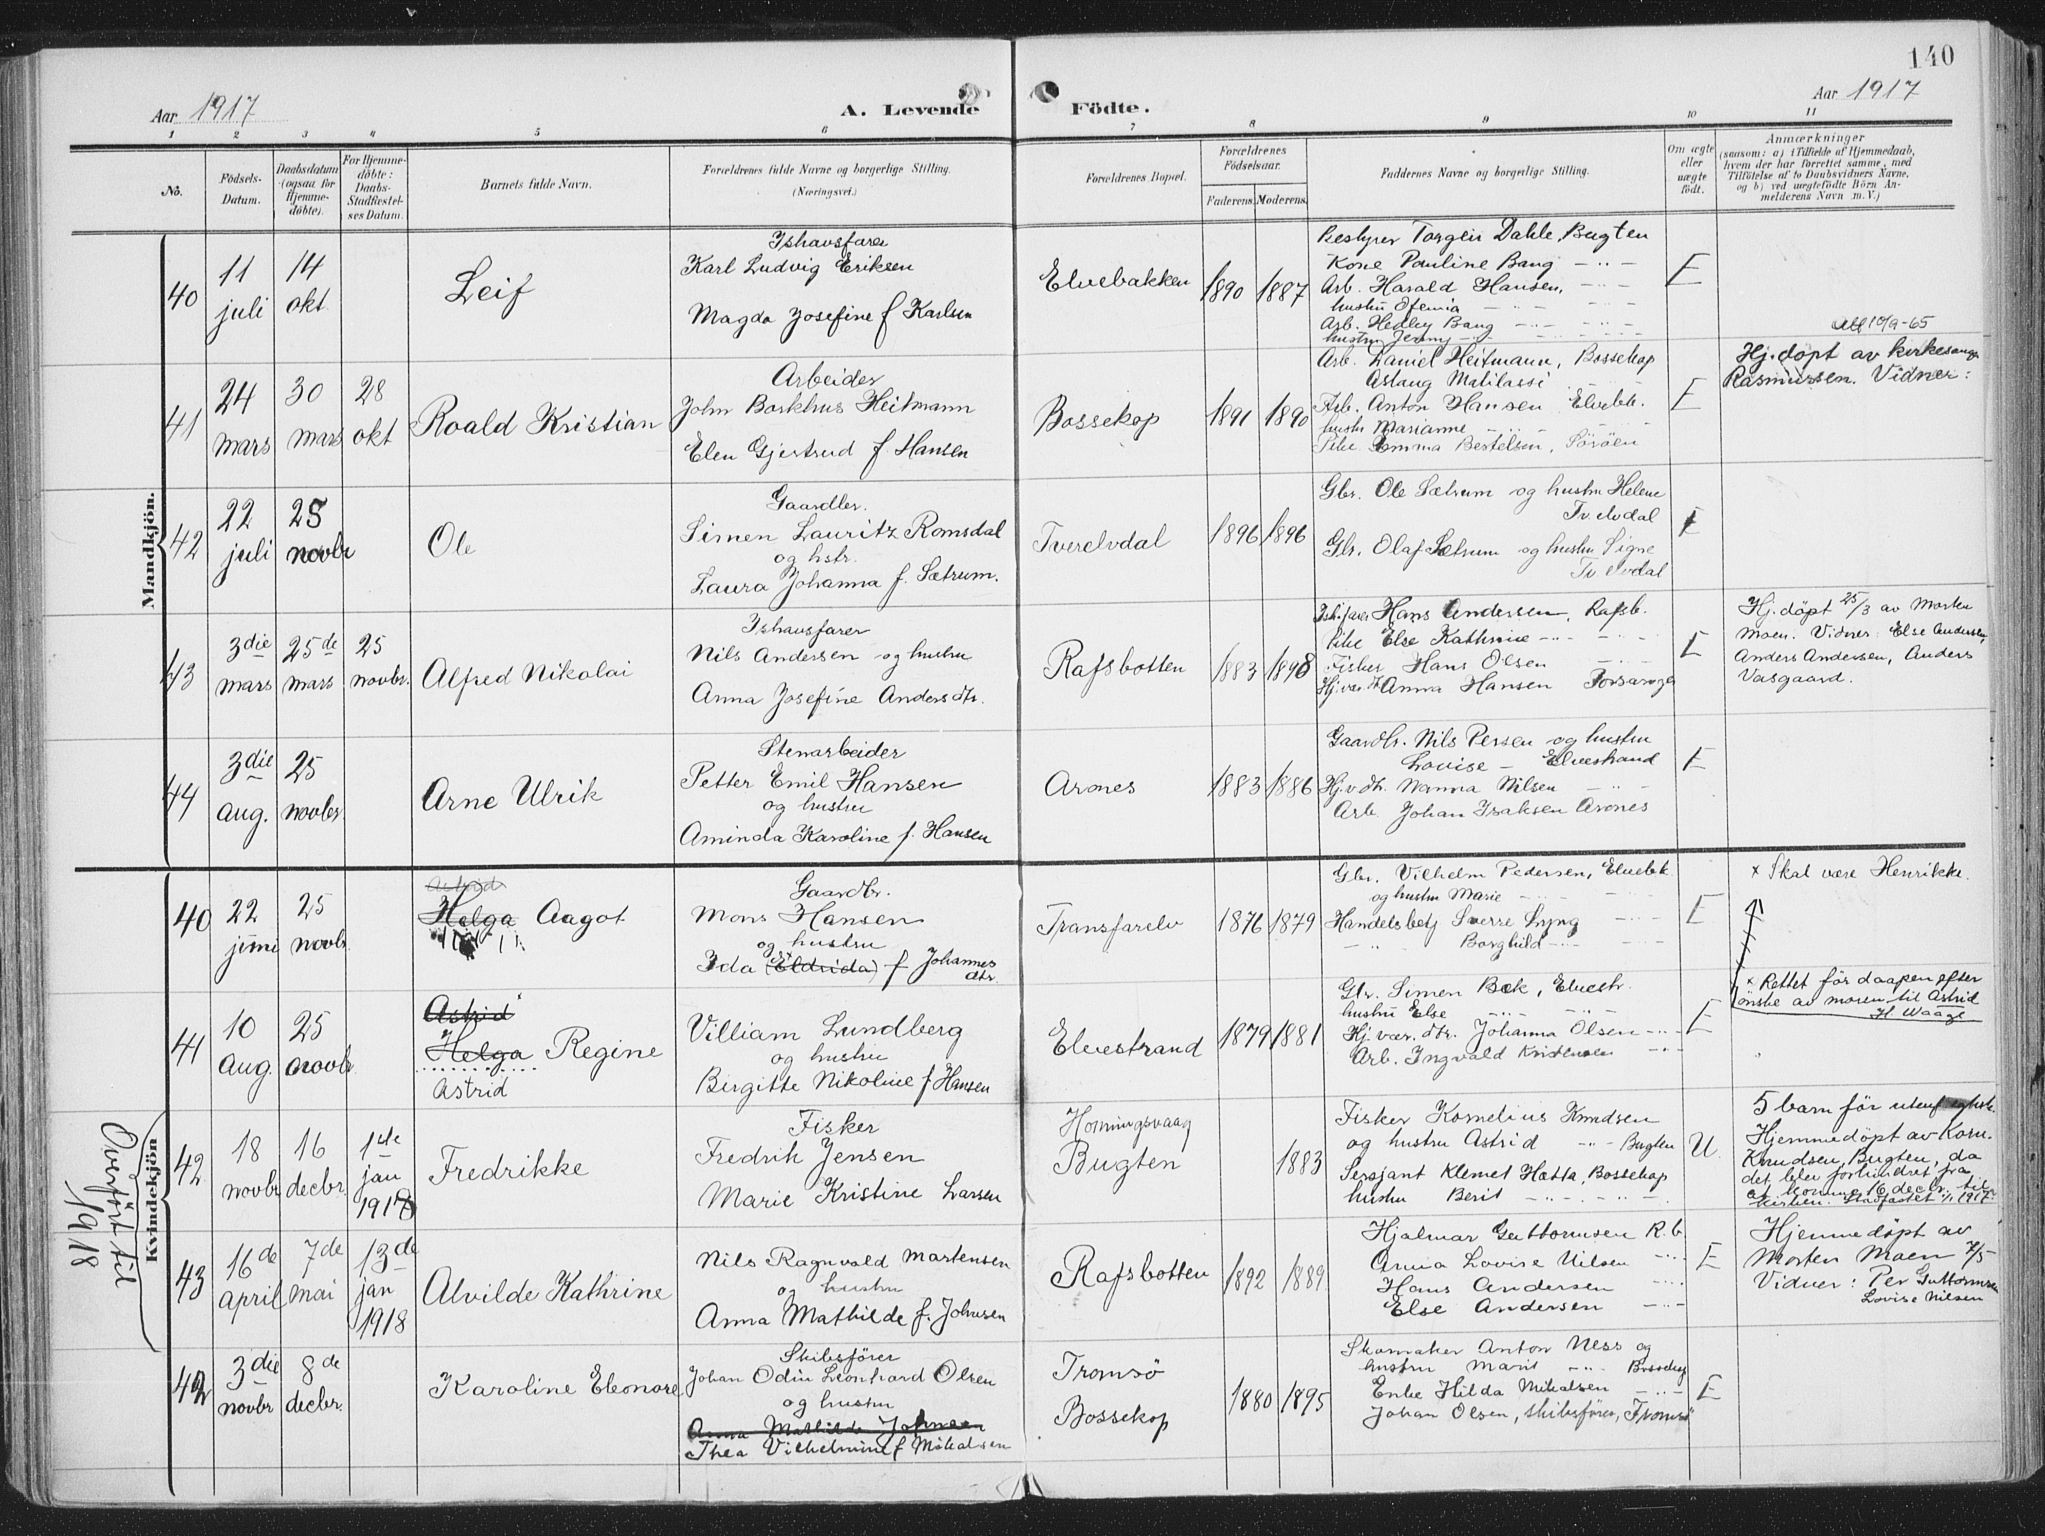 140
Aar 1917
A. Levende
Födte.
Aar 1917
1 2 3 4 5 6 7 8 9 10 11
No.
Födsels-
Datum.
Daabsdatum
(ogsaa for
Hjemme-
döbte).
For Hjemme-
döbte:
Daabs-
Stadfæstel-
ses Datum.
Barnets fulde Navn.
Forældrenes fulde Navne og borgerlige Stilling.
(Næringsvei.)
Forældrenes Bopæl.
Forældrenes
Födselsaar.
Faderens. Moderens.
Faddernes Navne og borgerlige Stilling.
Om ægte
eller
uægte
födt.
Anmærkninger
(saasom: a) i Tilfælde af Hjemmedaab,
hvem der har forrettet samme, med
Tilföielse af to Daabsvidners Navne,
og b) ved uægtefödte Börn An-
melderens Navn m.V.)
Mandkjön.
40
11
juli
14
okt.
Leif
Ishavsfarer
Karl Ludvig Eriksen
Magda Josefine f Karlsen
Elvebakken
1890 1887
Bestyrer Torgeir Dahle, Bugten
Kone Pauline Bang — " —
Arb. Harald Hansen, — " —
hustru Ofemia — " —
Arb. Hedley Bang — " —
hustru Jenny — " —
E
10/9-65
41
24
mars
30
mars
28
okt
Roald Kristian
Arbeider
John Borkhus Heitmann
Elen Gjertrud f Hansen
Bossekop
1891 1890
Arb. Daniel Heitmann, Bossekop
Aslaug Matilassi
Arb. Anton Hansen Elvebk.
hustr Marianne — " —
Pike Emma Bertelsen, Söröen
E
Hj. döpt av kirkesanger
Rasmussen. Vidner:
42
22
juli
25
novbr
Ole
Gaardbr.
Simen Lauritz Romsdal
og hstr.
Laura Johanna f. Sætrum.
Tverelvdal
1896 1896
Gbr. Ole Sætrum og hustru Helene
Tv.elvdal
Gbr. Olaf Sætrum og hustru Signe
Tv.elvdal
E
43
3die
mars
25de
mars
25
novbr.
Alfred Nikolai
Ishavsfarer
Nils Andersen og hustru
Anna Josefine Andersdtr.
Rafsbotten
1883 1898
Ish.farer Hans Andersen, Rafsb.
Pike Else Kathrine — " —
Fisker Hans Olsen — " —
Hj.vær.dtr Anna Hansen
E
Hj. döpt 25/3 av Morten
Moen. Vidner: Else Andersen,
Anders Andersen, Anders
Vasgaard.
44
3die
aug.
25
novbr.
Arne Ulrik
Stenarbeider
Petter Emil Hansen
og hustru
Aminda Karoline f. Hansen
Arones
1883 1886
Gaardbr. Nils Persen og hustru
Lovise — Elvestrand
Hj.v.dtr. Nanna Nilsen — " —
Arb. Johan Isaksen Arones
E
Kvindekjön
40
22
juni
25
novbr.
Astrid
Helga Aagot
Gaardbr.
Mons Hansen
og hustru
Ida (Eldrida) f Johannes
dtr.
Transfarelv
1876 1879
Gbr. Vilhelm Pedersen, Elvebk.
og hustru Marie — " —
Handelsbetj Sverre Lyng — " —
— " — Borghild — " —
E
x Skal være Henrikke.
41
10
aug.
25
novbr
Astrid
Helga Regine
Astrid
Villiam Lundberg
og hustru
Birgitte Nikoline f Hansen
Elvestrand
1879 1881
Gbr. Simen Bek, Elvestr.
hustru Else — " —
Hj.vær.dtr. Johanna Olsen — " —
Arb. Ingvald Kristensen — " —
E
x Rettet för daapen efter
önske av moren til Astrid
H Waage
42
18
novbr
16
decbr.
1ste
jan
1918
Fredrikke
Fisker
Fredrik Jensen
Marie Kristine Larsen
Honningsvaag
Bugten
1883
Fisker Kornelius Knudsen
og hustru Astrid — " — Bugten
Sersjant Klemet Hætta, Bossekop
hustru Berit — " —
U.
5 barn för utenf
Hjemmedöpt av Korn.
Knudsen, Bugten, da
det blev forhindret fra
at komme 16 decbr. til
kirken. Stadfæstet 1/1 1917.
Overfört til
1918
43
16de
april
7de
mai
13de
jan
1918
Alvilde Kathrine
Nils Ragnvald Martensen
og hustru
Anna Mathilde f. Johnsen
Rafsbotten
1892 1889
Hjalmar Guttormsen R.b
Anna Lovise Nilsen — " —
Hans Andersen — " —
Else Andersen — " —
E
Hjemmedöpt av
Morten Moen 7/5
Vidner: Per Guttormsen
Lovise Nilsen
42
3die
novbr
8de
decbr.
Karoline Eleonore
Skibsförer
Johan Odin Leonhard Olsen
og hustru
Anna Mathilde Johnsen
Thea Vilhelmine f Mikalsen
Tromsö
Bossekop
1880 1895
Skomaker Anton Ness og
hustru Marit — " — Bossekop
Enke Hilda Mikalsen — " —
Johan Olsen, skibsförer, Tromsö
E